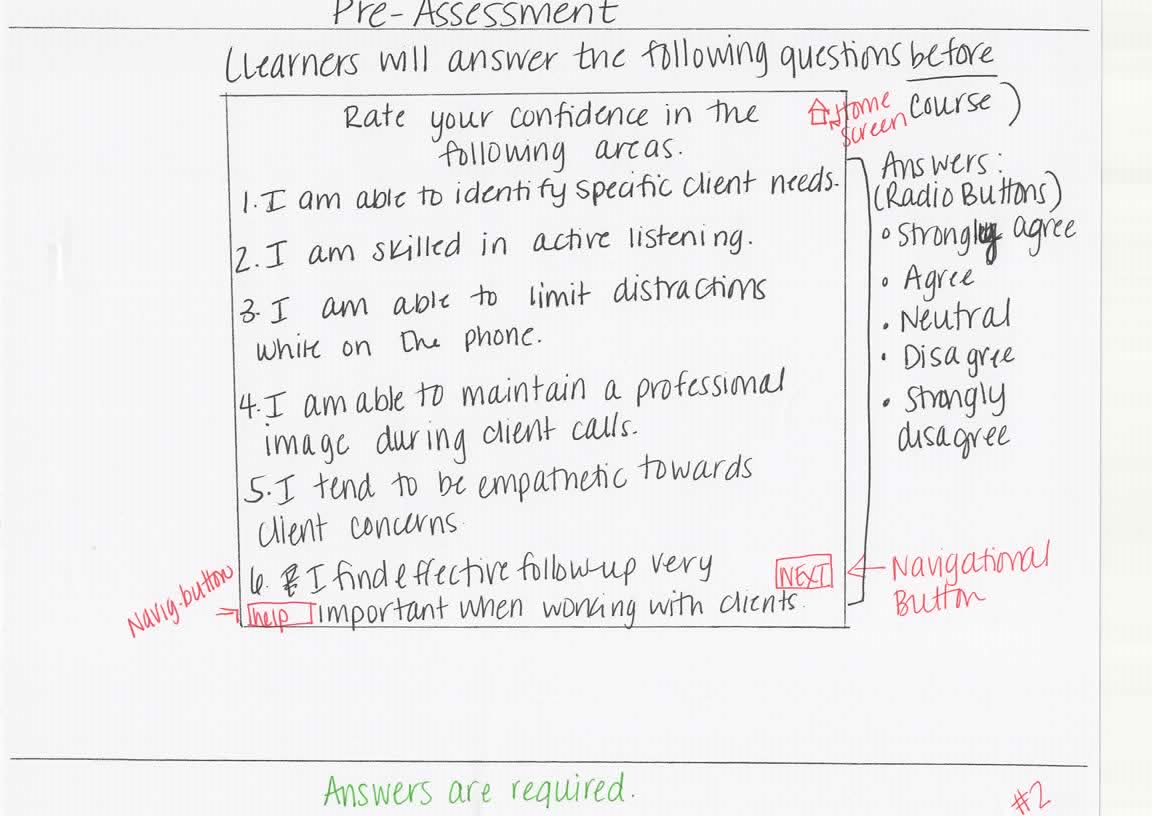 Pre-Assessment
(Learners will answer the following questions before
course)
Rate your confidence in the
following areas.
Home
Screen
1. I am able to identify specific client needs.
2. I am skilled in active listening.
3. I am able to limit distractions
while on the phone.
4. I am able to maintain a professional
image during client calls.
5. I tend to be empathetic towards
client concerns.
6. I find effective follow-up very
important when working with clients.
NEXT
help
Navig-button
Answers:
(Radio Buttons)
• Strongly agree
• Agree
• Neutral
• Disagree
• Strongly
disagree
Navigational
Button
Answers are required.
#2